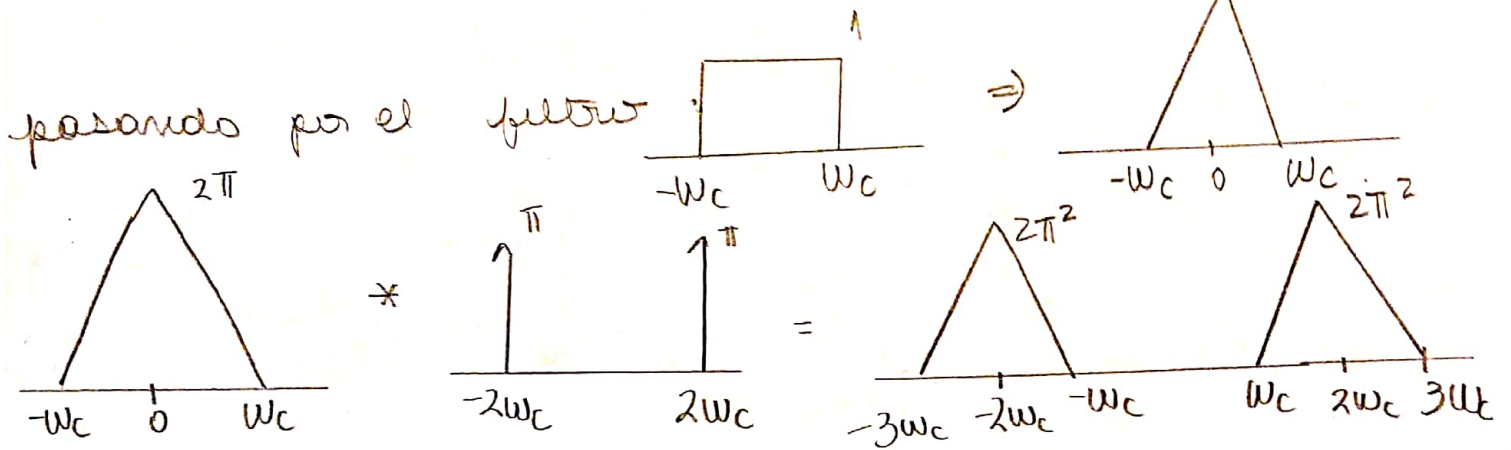 1
pasando por el filtro : ⇒
-Wc Wc -Wc 0 Wc
2π π π 2π² 2π²
* =
-Wc 0 Wc -2Wc 2Wc -3Wc -2Wc -Wc Wc 2Wc 3Wc